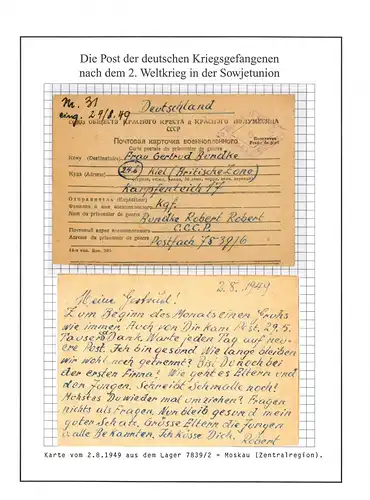 Die Post der deutschen Kriegsgefangenen
nach dem 2. Weltkrieg in der Sowjetunion
Nr. 31
eing. 29/8.49
Deutschland
СОЮЗ ОБЩЕСТВ КРАСНОГО КРЕСТА и КРАСНОГО ПОЛУМЕСЯЦА
СССР
Почтовая карточка военнопленного
Carte postale du prisonnier de guerre
Кому (Destinataire) Frau Gertrud Rundke
Куда (Adresse) (24b) Kiel (Britische Zone)
Karpfenteich 17
Отправитель (Expéditeur)
Фамилия и имя военнопленного Kgf.
Nom du prisonnier de guerre
Rundke Robert Robert
Почтовый адрес военнопленного C.C.C.P.
Adresse du prisonnier de guerre Postfach 7839/2
2.8.1949
Meine Gertrud!
Zum Beginn des Monats einen Gruhs
wie immer. Auch von Dir kam Post. 29.5.
Tausend Dank. Warte jeden Tag auf neu-
ere Post. Ich bin gesund. Wie lange bleiben
wir wohl noch getrennt? Bist Du noch bei
der ersten Firma? Wie geht es Eltern und
den Jungen. Schreibt Schmalle noch!
Möchtest Du wieder mal umziehen? Fragen
nichts als Fragen. Nun bleib gesund mein
guter Schatz. Grüsse Eltern die Jungen
u. alle Bekannten. Ich küsse Dich. Robert
Karte vom 2.8.1949 aus dem Lager 7839/2 = Moskau (Zentralregion).